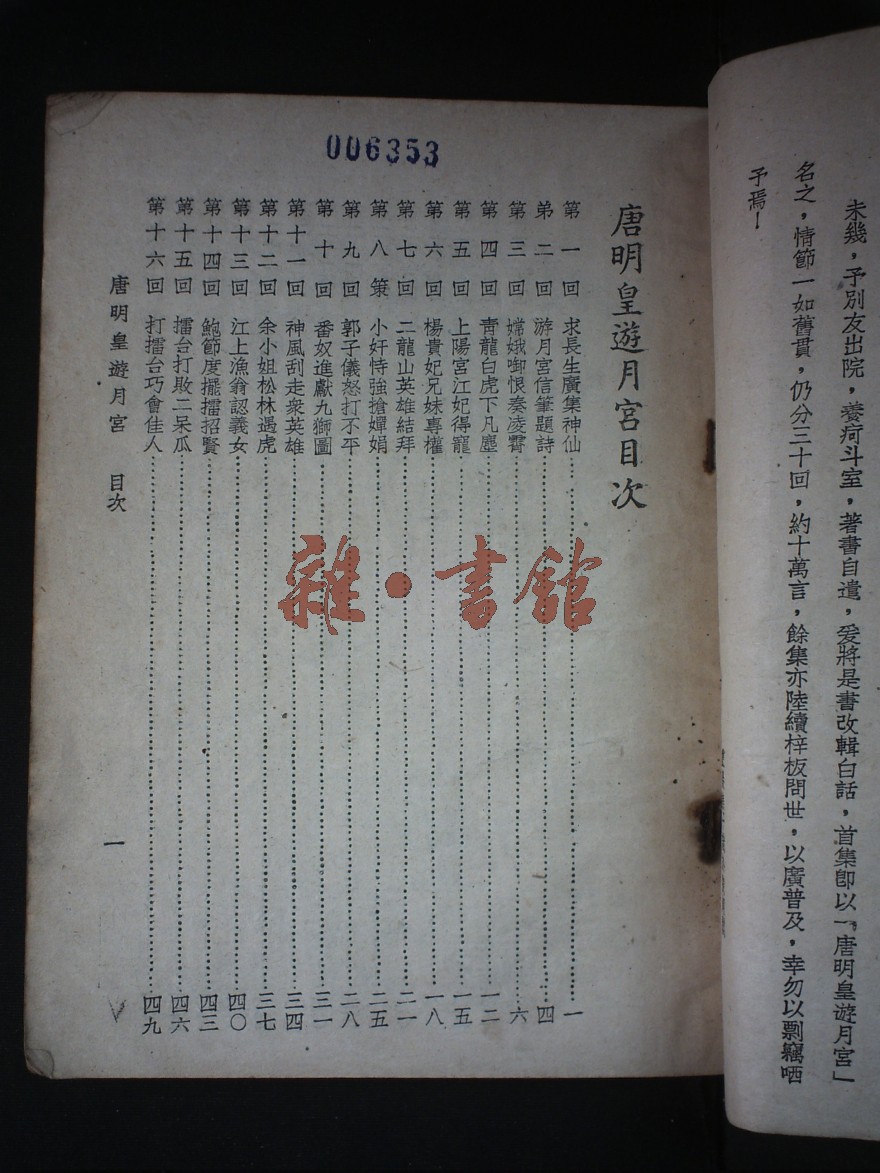 未幾，予別友出院，養疴斗室，著書自遣，爰將是書改輯白話，首集卽以「唐明皇遊月宮」
名之，情節一如舊貫，仍分三十回，約十萬言，餘集亦陸續梓板問世，以廣普及，幸勿以剽竊哂
予焉！
006353
唐明皇遊月宮目次
第一回 求長生廣集神仙……一
弟二回 游月宮信筆題詩……四
第三回 嫦娥啣恨奏凌霄……六
第四回 青龍白虎下凡塵……一二
第五回 上陽宮江妃得寵……一五
第六回 楊貴妃兄妹專權……一八
第七回 二龍山英雄結拜……二一
第八策 小奸恃強搶嬋娟……二五
第九回 郭子儀怒打不平……二八
第十回 番奴進獻九獅圖……三一
第十一回 神風刮走衆英雄……三四
第十二回 余小姐松林遇虎……三七
第十三回 江上漁翁認義女……四〇
第十四回 鮑節度擺擂招賢……四三
第十五回 擂台打敗二呆瓜……四六
第十六回 打擂台巧會佳人……四九
唐明皇遊月宮 目次
一
雜·書館